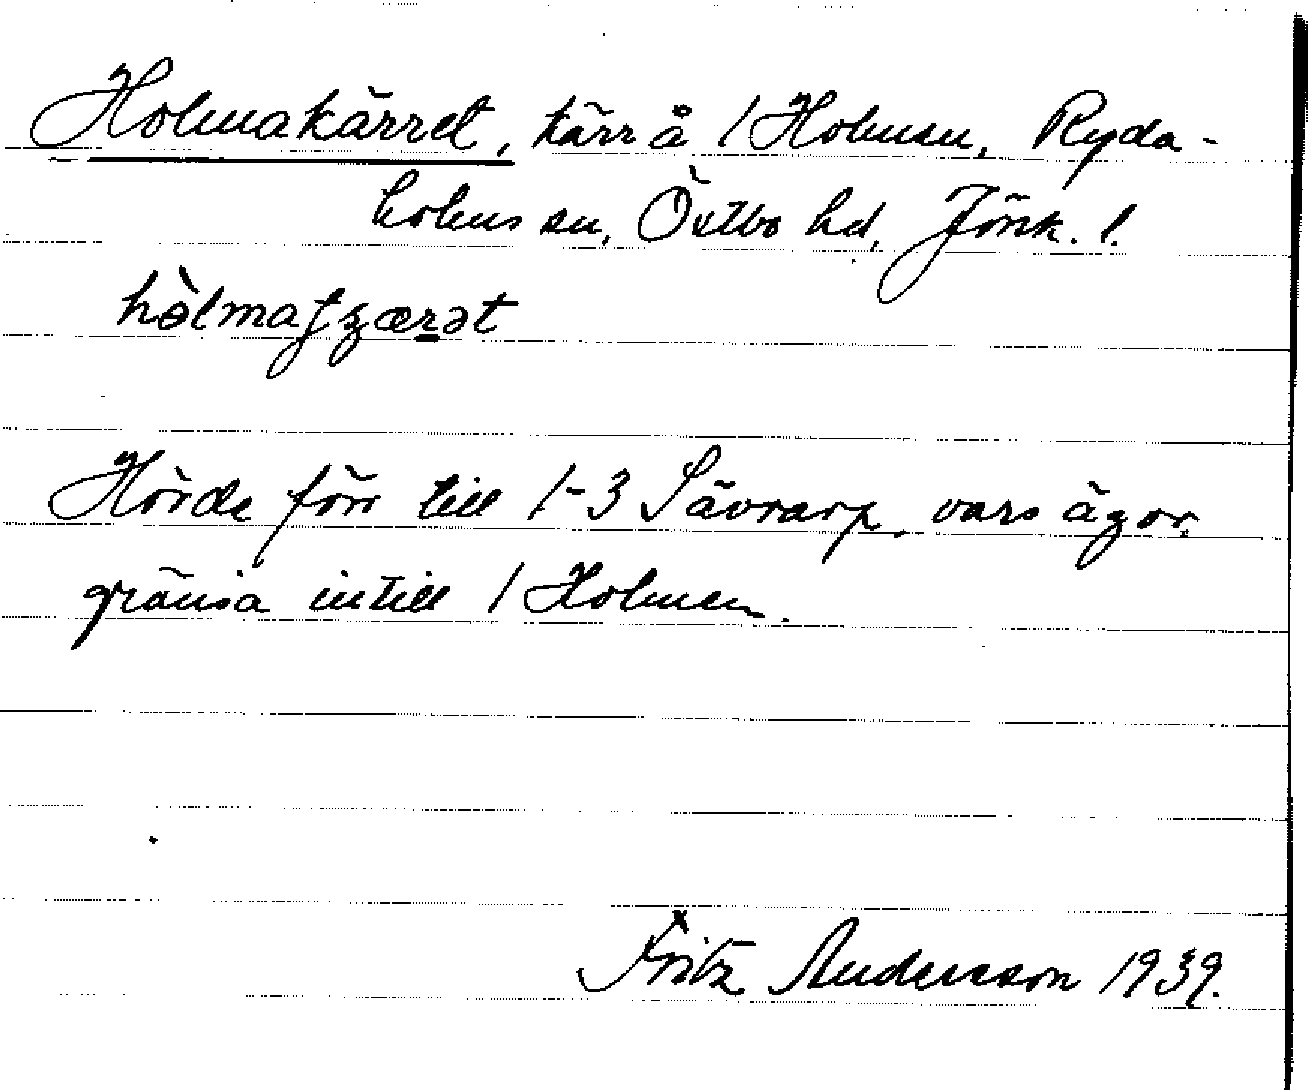 Holmakärret, kärr å 1 Holmen, Ryda-
holms sn, Östbo hd, Jönk. l.
hòlmaʃʒærət
Hörde förr till 1-3 Sävrarp, vars ägor
gränsa intill 1 Holmen.
Fritz Andersson 1939.